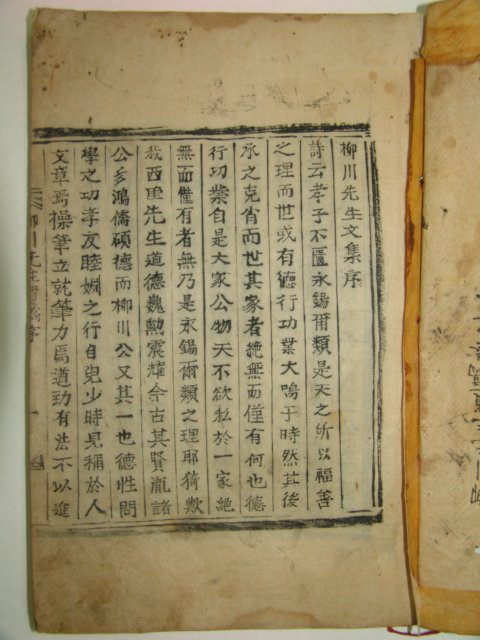 柳川先生文集序
詩云孝子不匱永錫爾類是天之所以福善
之理而世或有德行功業大鳴于時然其後
承之克肖而世其家者絶無而僅有何也德
行功業自是大家公物天不欲私於一家絶
無而僅有者無乃是永錫爾類之理耶猗歟
我西厓先生道德巍勳震耀今古其賢胤諸
公多鴻儒碩德而柳川公又其一也德性問
學之功孝友睦婣之行自兒少時見稱於人
文章焉操筆立就筆力爲遒勁有法不以進
柳川先生
序
一